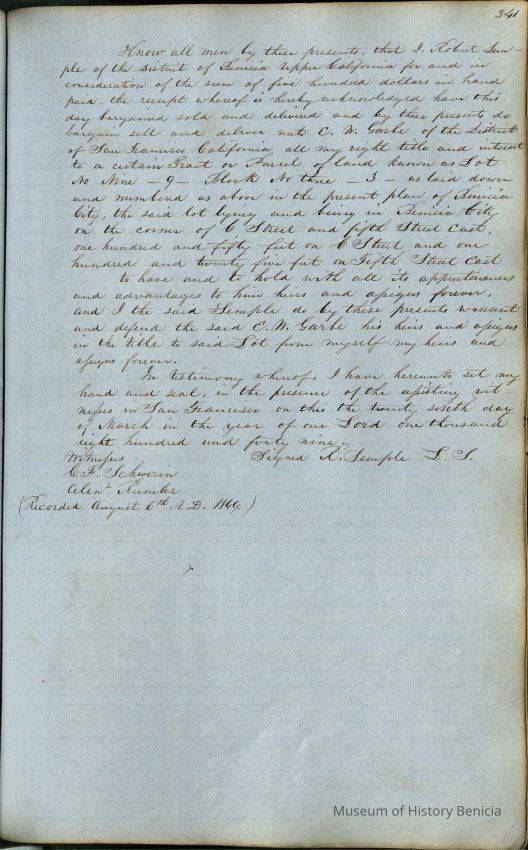 341
Know all men by these presents, that I. Robert Sem-
ple of the District of Benicia Upper California for and in
consideration of the sum of five hundred dollars in hand
paid, the receipt whereof is hereby acknowledged have this
day bargained sold and delivered and by these presents do
bargain sell and deliver unto C. W. Garbe of the District
of San Francisco California, all my right title and interest
to a certain Tract or Parcel of land known as Lot
No Nine - 9 - Block No three - 3 - as laid down
and numbered as above in the present plan of Benicia
City, the said lot lying and being in Benicia City
on the corner of C Street and fifth Street East,
one hundred and fifty feet on C Street and one
hundred and twenty five feet on Fifth Street East
to have and to hold with all its appurtenances
and advantages to him heirs and assigns forever.
and I the said Semple do by these presents warrant
and defend the said C. W. Garbe his heirs and assigns
in the title to said Lot from myself my heirs and
assigns forever.
In testimony whereof, I have hereunto set my
hand and seal, in the presence of the assisting wit
nesses in San Francisco on this the twenty sixth day
of March in the year of our Lord one thousand
eight hundred and forty nine,
Witnesses Signed R. Semple L. S.
C. F. Schwerin
(Recorded August 6th A.D. 1849.)
Museum of History Benicia